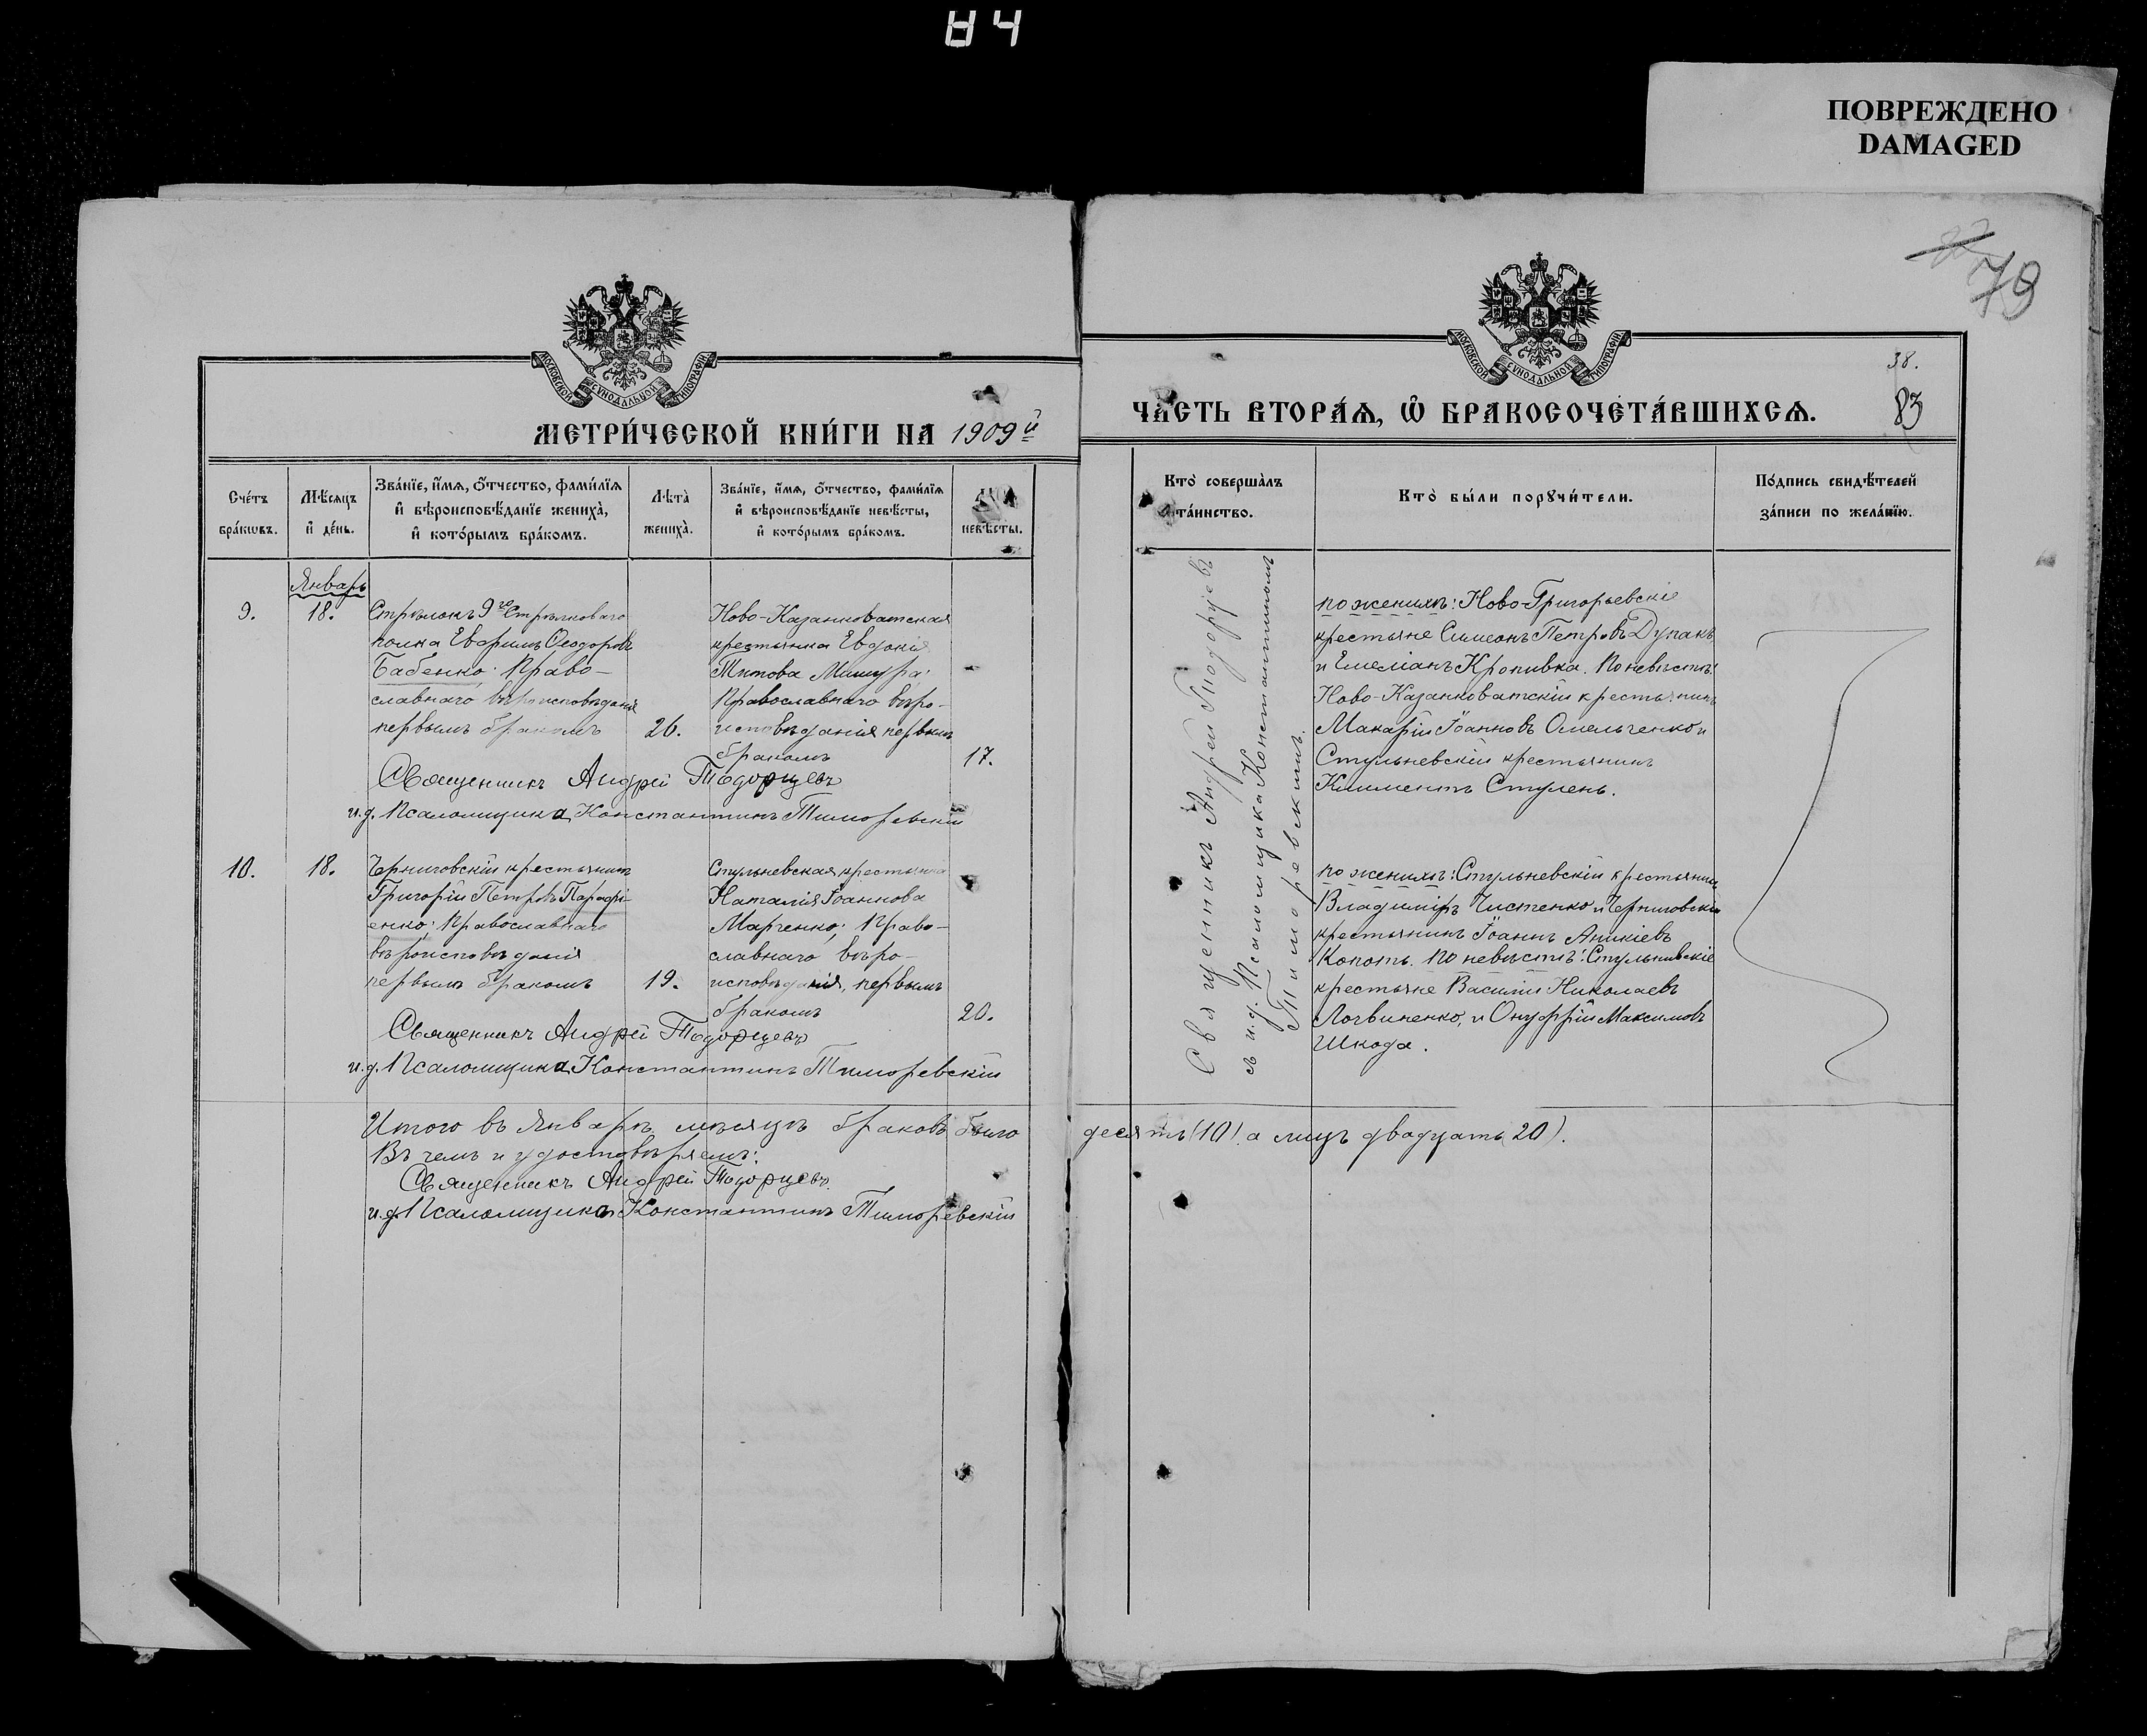 84
ПОВРЕЖДЕНО
DAMAGED
79
38.
83
МОСКОВСКОЙ СѴНОДАЛЬНОЙ ТИПОГРАФІИ.
МЕТРИ́ЧЕСКОЙ КНИ́ГИ НА 1909й
Сче́тъ бра́кωвъ.
Мѣ́сяцъ и҆ де́нь.
Зва́нїе, и҆́мѧ, ѻ҆́тчество, фами́лїѧ
и҆ вѣроисповѣ́данїе жениха̀,
и҆ кото́рымъ бра́комъ.
Лѣта̀ жениха̀.
Зва́нїе, и҆́мѧ, ѻ҆́тчество, фами́лїѧ
и҆ вѣроисповѣ́данїе невѣ́сты,
и҆ кото́рымъ бра́комъ.
невѣ́сты.
Январь
9.
18.
Стрѣлокъ 9го Стрѣлковаго
полка Евфимъ Ѳеодоровъ
Бабенко; Право-
славнаго вѣроисповѣданія
первымъ бракомъ
26.
Ново-Казанковатская
крестьянка Евдокія
Титова Мишура;
Православнаго вѣро-
исповѣданія первымъ
бракомъ
17.
Священникъ Андрей Тодорцевъ
и.д. Псаломщика Константинъ Тиморевскій
10.
18.
Черниговскій крестьянинъ
Григорій Петровъ Парафі-
енко; Православнаго
вѣроисповѣданія
первымъ бракомъ
19.
Стульневская крестьянка
Наталія Іоаннова
Марченко; Право-
славнаго вѣро-
исповѣданія, первымъ
бракомъ
20.
Священникъ Андрей Тодорцевъ
и.д. Псаломщика Константинъ Тиморевскій
Итого въ Январѣ мѣсяцѣ браковъ было
Въ чемъ и удостовѣряемъ:
Священникъ Андрей Тодорцевъ
и.д. Псаломщика Константинъ Тиморевскій
МОСКОВСКОЙ СѴНОДАЛЬНОЙ ТИПОГРАФІИ.
ЧАСТЬ ВТОРА́Ѧ, Ѽ БРАКОСОЧЕТА́ВШИХСѦ.
Кто̀ соверша́лъ
та́инство.
Кто̀ бы́ли порꙋчи́тели.
По́дпись свидѣ́телей
за́писи по жела́нїю.
Священникъ Андрей Тодорцевъ
съ и.д. Псаломщика Константиномъ
Тиморевскимъ.
по женихѣ: Ново-Григорьевскіе
крестьяне Симеонъ Петровъ Дупакъ
и Емеліанъ Кропивка. По невѣстѣ:
Ново-Казанковатскій крестьянинъ
Макарій Іоанновъ Омельченко и
Стульневскій крестьянинъ
Климентъ Ступень.
по женихѣ: Стульневскій крестьянинъ
Владиміръ Чистенко и Черниговскій
крестьянинъ Іоаннъ Аникіевъ
Копоть. по невѣстѣ: Стульневскіе
крестьяне Василій Николаевъ
Логвиненко, и Онуфрій Максимовъ
Шкода.
десять (10). а лицъ двадцать (20).